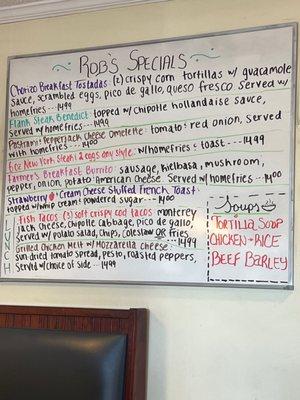 Rob's Specials
Chorizo Breakfast Tostadas: (2) crispy corn tortillas w/ guacamole
sauce, scrambled eggs, pico de gallo, queso fresco. Served w/
homefries... 1499
Flank Steak Benedict: topped w/ Chipotle hollandaise sauce,
Served w/ homefries... 1499
Pastrami & Pepperjack Cheese Omelette: tomato, red onion, served
with homefries... 1400
6oz New York Steak & 2 eggs any style: w/ homefries & toast... 1499
Farmer's Breakfast Burrito: sausage, kielbasa, mushroom,
pepper, onion, potato, American cheese. Served w/ homefries... 1400
Strawberry Cream Cheese Stuffed French Toast:
topped w/ whip cream & powdered sugar... 1400
LUNCH
Fish Tacos: (3) soft crispy cod tacos monterey
Jack Cheese, Chipotle Cabbage, pico de gallo,
served w/ potato salad, chips, coleslaw OR fries
...1499
Grilled Chicken Melt w/ Mozzarella cheese:
Sun-dried tomato spread, pesto, roasted peppers,
Served w/ choice of side... 1499
Soups
Tortilla Soup
Chicken & Rice
Beef Barley